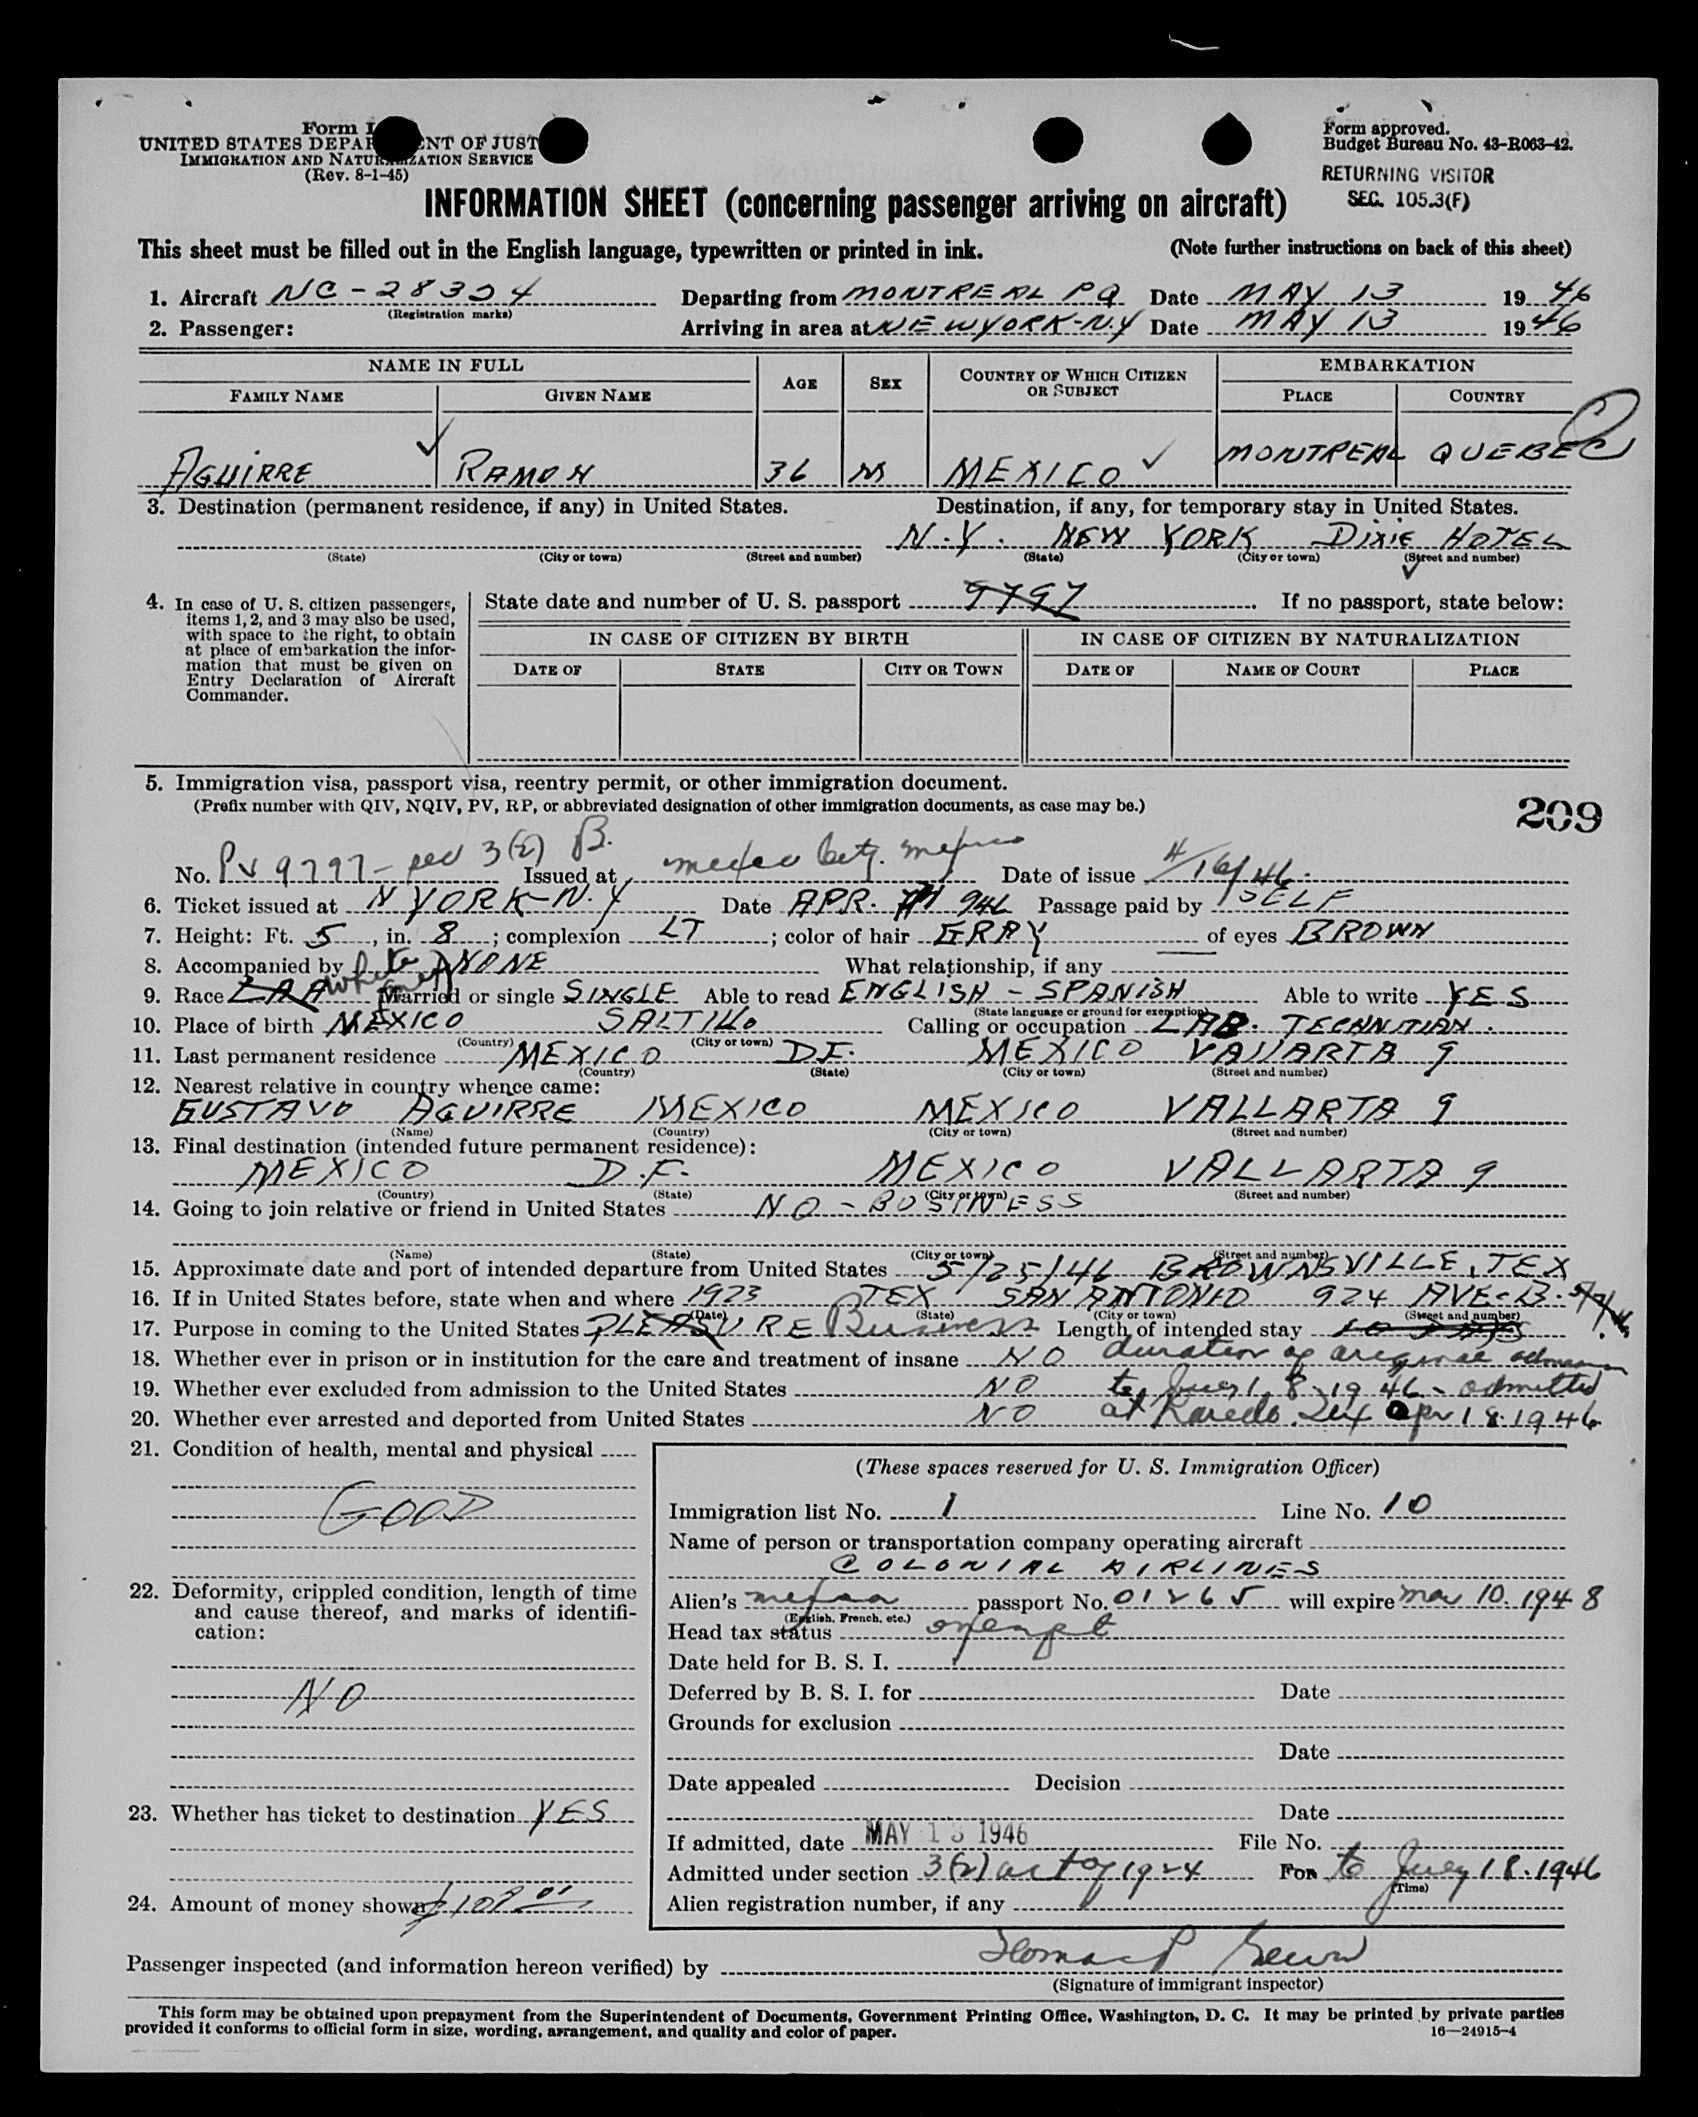 Form I
UNITED STATES DEPARTMENT OF JUST
IMMIGRATION AND NATURALIZATION SERVICE
(Rev. 8-1-45)
Form approved.
Budget Bureau No. 43-R063-42.
RETURNING VISITOR
SEC. 105.3(F)
INFORMATION SHEET (concerning passenger arriving on aircraft)
This sheet must be filled out in the English language, typewritten or printed in ink. (Note further instructions on back of this sheet)
1. Aircraft NC-28324 Departing from MONTREAL PQ Date MAY 13 1946
(Registration marks)
2. Passenger: Arriving in area at NEW YORK-N.Y Date MAY 13 1946
NAME IN FULL AGE SEX COUNTRY OF WHICH CITIZEN OR SUBJECT EMBARKATION
FAMILY NAME GIVEN NAME PLACE COUNTRY
AGUIRRE RAMON 36 M MEXICO MONTREAL QUEBEC
3. Destination (permanent residence, if any) in United States. Destination, if any, for temporary stay in United States.
N.Y. NEW YORK DIXIE HOTEL
(State) (City or town) (Street and number) (State) (City or town) (Street and number)
4. In case of U. S. citizen passengers, items 1, 2, and 3 may also be used, with space to the right, to obtain at place of embarkation the information that must be given on Entry Declaration of Aircraft Commander.
State date and number of U. S. passport 9797 If no passport, state below:
IN CASE OF CITIZEN BY BIRTH IN CASE OF CITIZEN BY NATURALIZATION
DATE OF STATE CITY OR TOWN DATE OF NAME OF COURT PLACE
5. Immigration visa, passport visa, reentry permit, or other immigration document.
(Prefix number with QIV, NQIV, PV, RP, or abbreviated designation of other immigration documents, as case may be.)
209
No. PV 9797- sec 3(2) B. Issued at Mexico City. Mexico Date of issue 4/16/46.
6. Ticket issued at N YORK-N.Y Date APR. 946 Passage paid by SELF
7. Height: Ft. 5, in. 8; complexion LT; color of hair GRAY of eyes BROWN
8. Accompanied by NONE What relationship, if any
9. Race white Married or single SINGLE Able to read ENGLISH - SPANISH Able to write YES
(State language or ground for exemption)
10. Place of birth MEXICO SALTILLO Calling or occupation LAB. TECHNITIAN.
(Country) (City or town)
11. Last permanent residence MEXICO D.F. MEXICO VALLARTA 9
(Country) (State) (City or town) (Street and number)
12. Nearest relative in country whence came:
GUSTAVO AGUIRRE MEXICO MEXICO VALLARTA 9
(Name) (Country) (City or town) (Street and number)
13. Final destination (intended future permanent residence):
MEXICO D.F. MEXICO VALLARTA 9
(Country) (State) (City or town) (Street and number)
14. Going to join relative or friend in United States NO - BUSINESS
(Name) (State) (City or town) (Street and number)
15. Approximate date and port of intended departure from United States 5/25/46 BROWNSVILLE, TEX
16. If in United States before, state when and where 1923 TEX SAN ANTONIO 924 AVE-B.
(Date) (State) (City or town) (Street and number)
17. Purpose in coming to the United States PLEASURE Business Length of intended stay 10 DAYS
18. Whether ever in prison or in institution for the care and treatment of insane NO duration of original admission
19. Whether ever excluded from admission to the United States NO to July 18, 1946 - admitted
20. Whether ever arrested and deported from United States NO at Laredo. Tex Apr 18. 1946
21. Condition of health, mental and physical
GOOD
22. Deformity, crippled condition, length of time and cause thereof, and marks of identification:
NO
23. Whether has ticket to destination YES
24. Amount of money shown $108 00
(These spaces reserved for U. S. Immigration Officer)
Immigration list No. 1 Line No. 10
Name of person or transportation company operating aircraft
COLONIAL AIRLINES
Alien's Mexican passport No. 01265 will expire Mar 10. 1948
(English, French, etc.)
Head tax status exempt
Date held for B. S. I.
Deferred by B. S. I. for Date
Grounds for exclusion
Date
Date appealed Decision
Date
If admitted, date MAY 13 1946 File No.
Admitted under section 3(2) act of 1924 For to July 18. 1946
(Time)
Alien registration number, if any
Passenger inspected (and information hereon verified) by
(Signature of immigrant inspector)
This form may be obtained upon prepayment from the Superintendent of Documents, Government Printing Office, Washington, D. C. It may be printed by private parties
provided it conforms to official form in size, wording, arrangement, and quality and color of paper.
16—24915-4